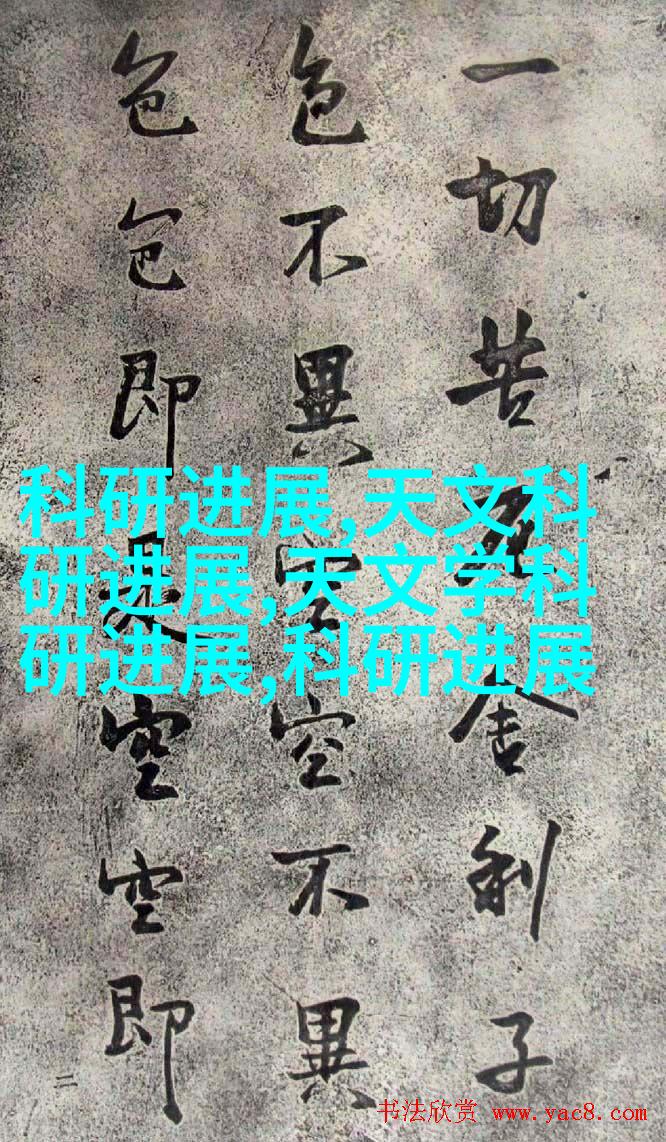 一切苦厄舍利子
色不異空空不異
色色即是空空即
二
科研进展,天文科
研进展,天文学科
研进展,科研进展
书法欣赏 www.yac8.com